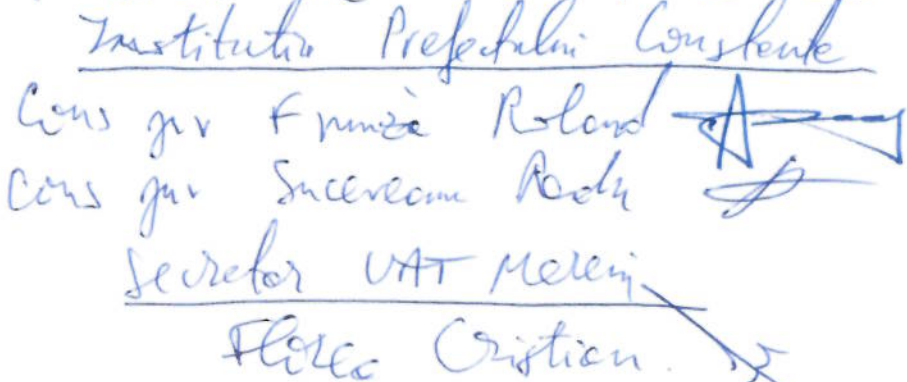 Institutia Prefectului Constanta
Cons jur Frunză Roland
Cons jur Suceveanu Radu
Secretar UAT Mereni
Florea Cristian.